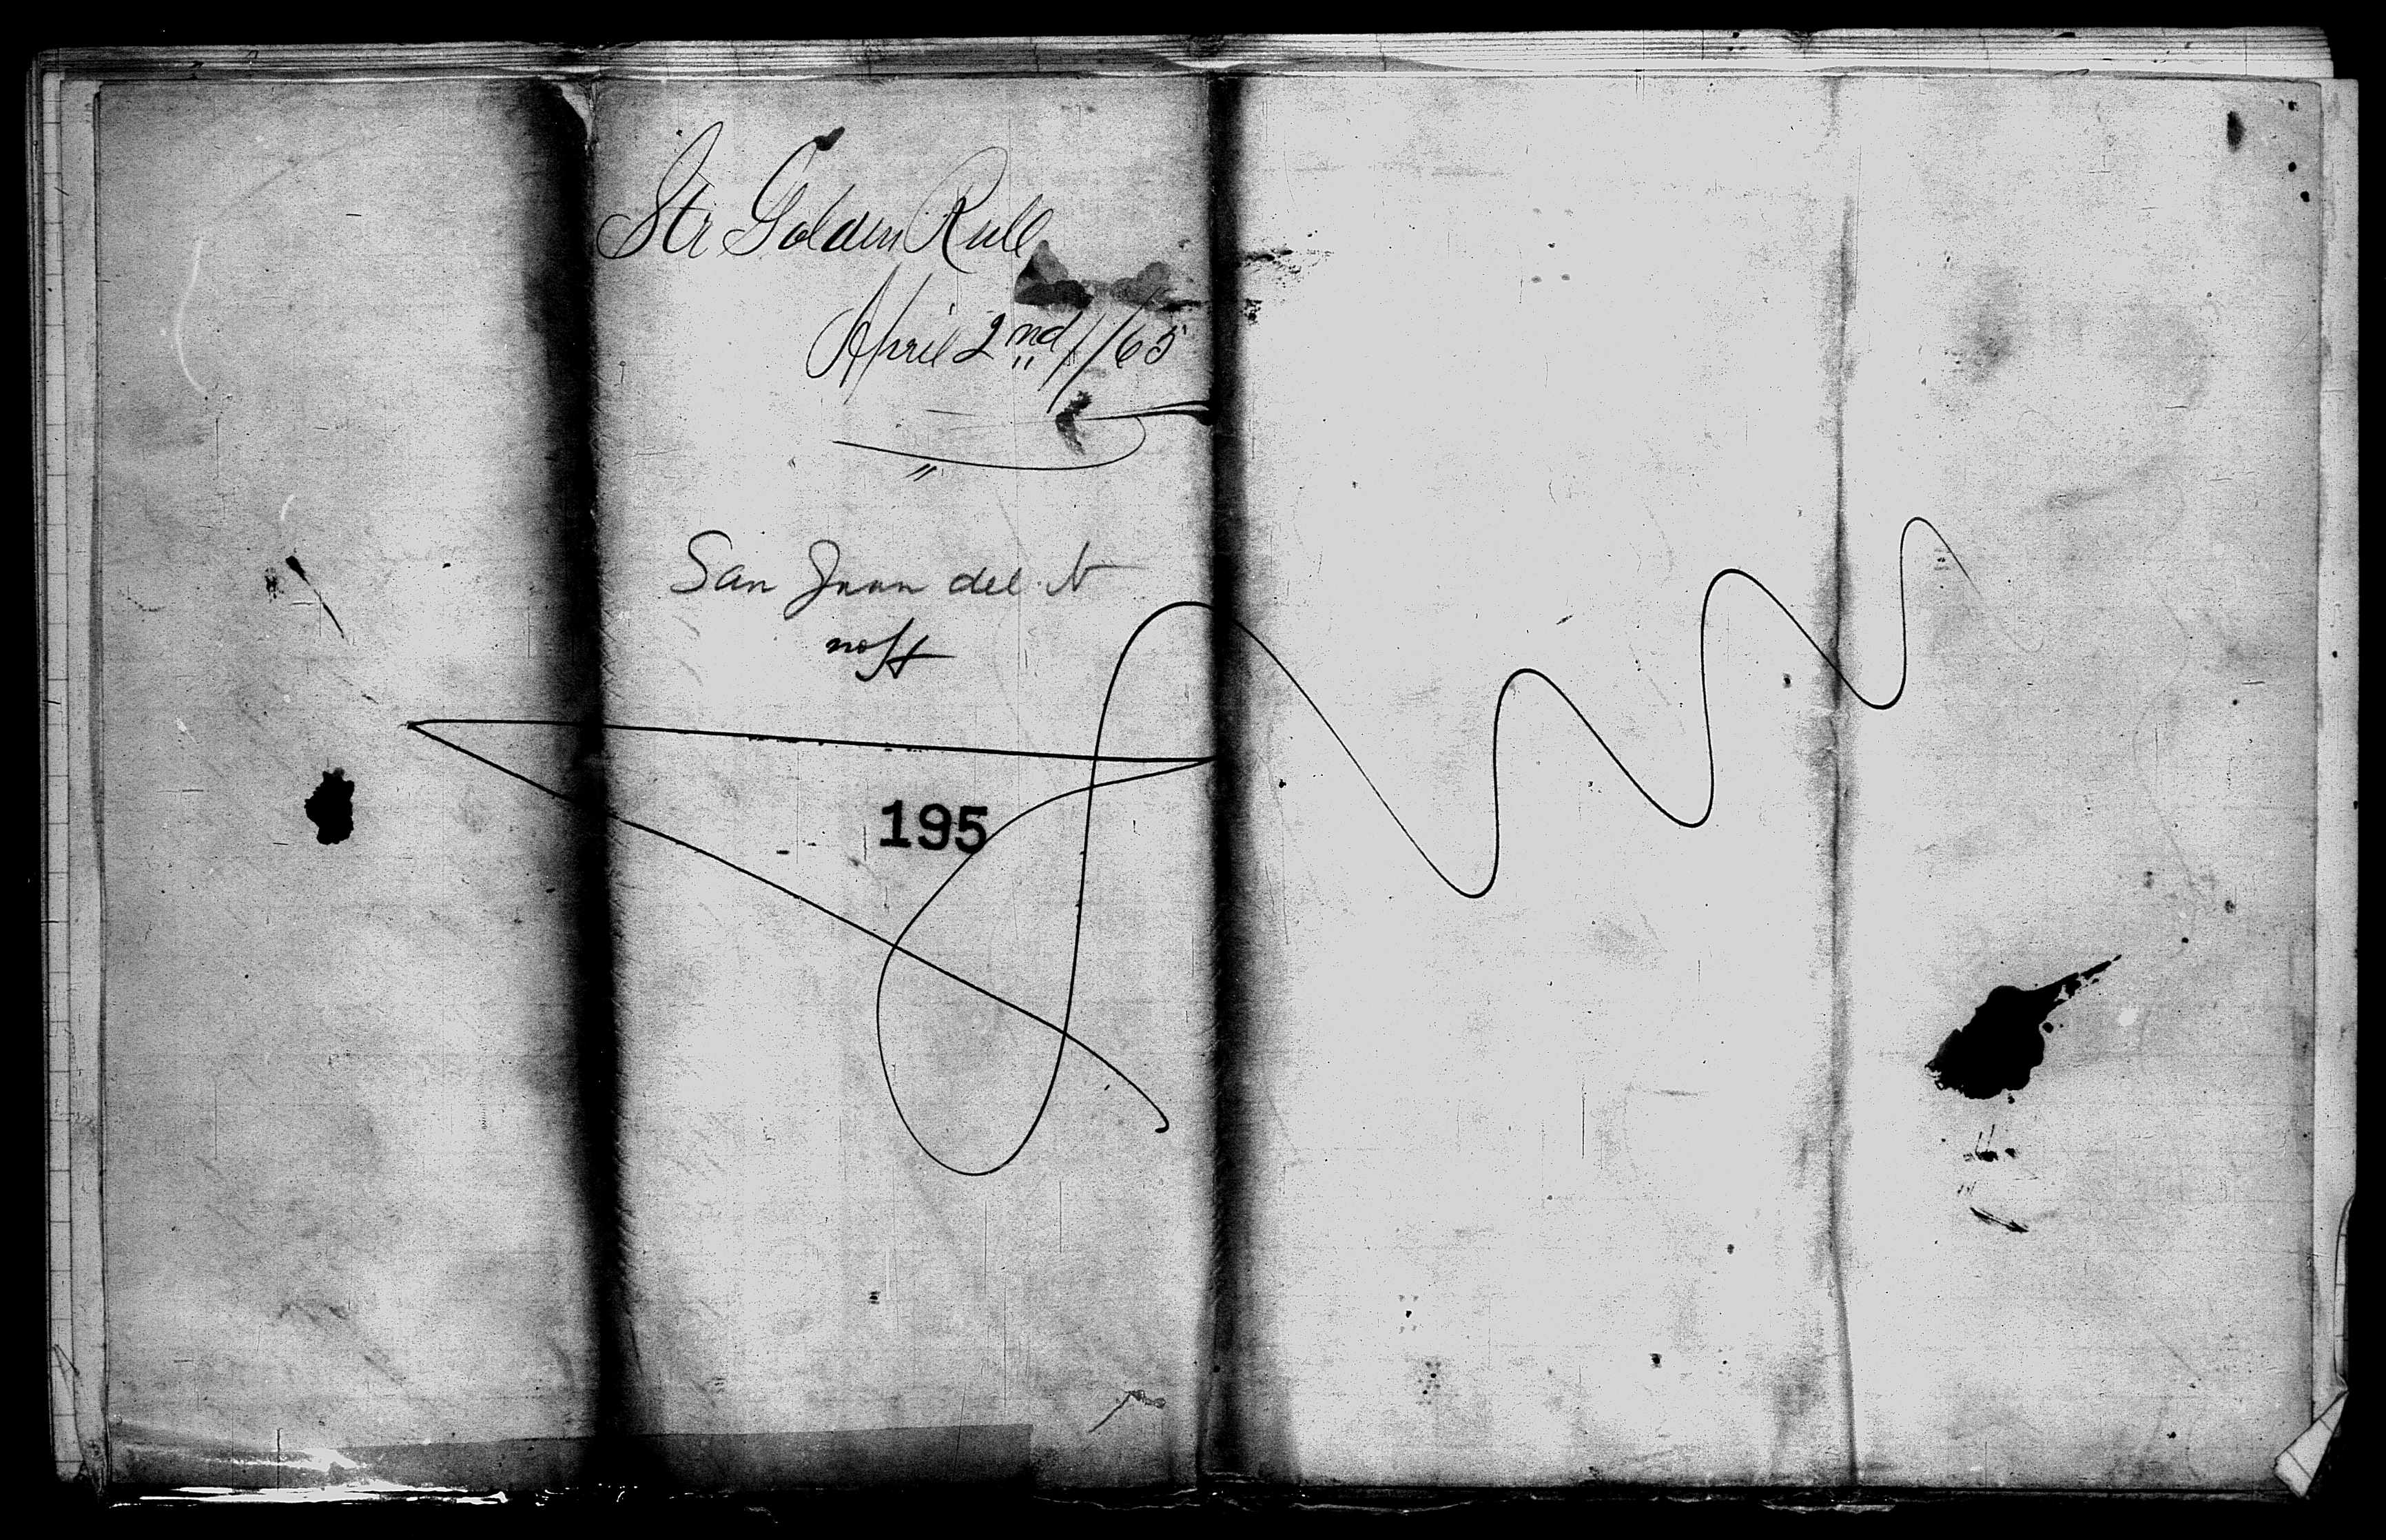 Str Golden Rule
April 2nd / /65
San Juan del N
195